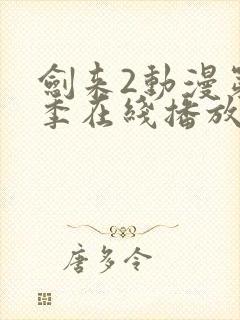 劍来2動漫第
季在綫播放
唐多令